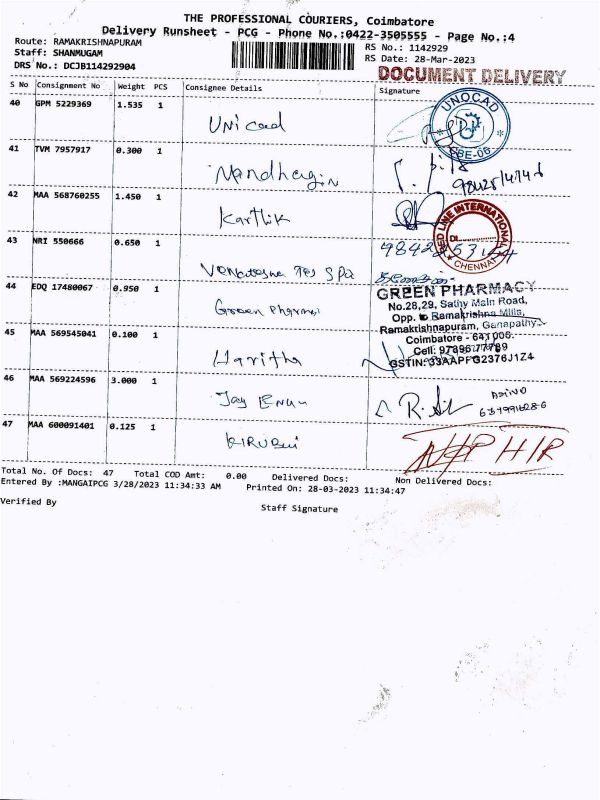 THE PROFESSIONAL COURIERS, Coimbatore
Delivery Runsheet - PCG - Phone No.:0422-3505555 - Page No.:4
Route: RAMAKRISHNAPURAM
RS No.: 1142929
Staff: SHANMUGAM
RS Date: 28-Mar-2023
DRS No.: DCJB114292904
DOCUMENT DELIVERY
S No Consignment No Weight PCS Consignee Details Signature
40 GPM 5229369 1.535 1
Unicad
UNOCAD
CBE-06.
41 TVM 7957917 0.300 1
42 MAA 568760255 1.450 1
Karthik
RED LINE INTERNATIONAL
CHENNAI
43 NRI 550666 0.650 1
44 EDQ 17480067 0.950 1
Green Pharmaci
GREEN PHARMACY
No.28,29, Sathy Main Road,
Opp. to Ramakrishna Mills,
Ramakrishnapuram, Ganapathy.
Coimbatore - 641 006.
Cell: 97896 77789
GSTIN: 33AAPFG2376J1Z4
45 MAA 569545041 0.100 1
Haritha
46 MAA 569224596 3.000 1
47 MAA 600091401 0.125 1
Total No. Of Docs: 47 Total COD Amt: 0.00 Delivered Docs: Non Delivered Docs:
Entered By :MANGAIPCG 3/28/2023 11:34:33 AM Printed On: 28-03-2023 11:34:47
Verified By
Staff Signature